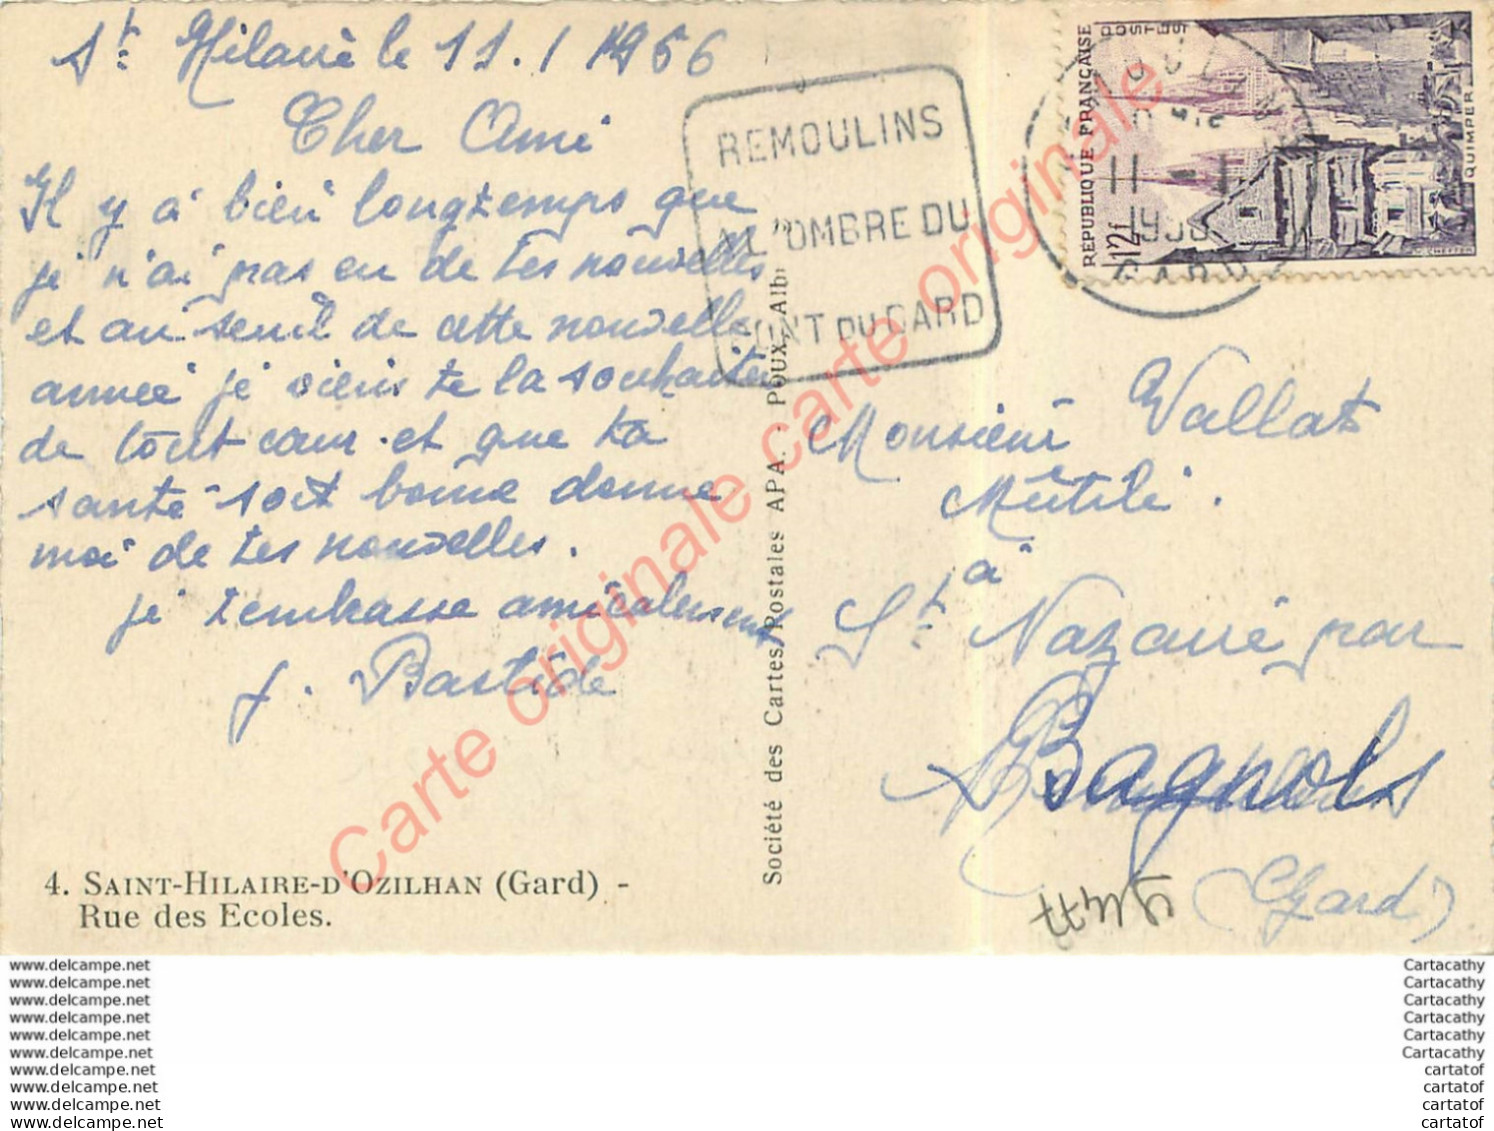 St Hilaire le 11.1 1956
Cher Ami
Il y à bien longtemps que
je n'ai pas eu de tes nouvelles
et au seuil de cette nouvelle
année je viens te la souhaiter
de tout cœur et que ta
santé soit bonne donne
moi de tes nouvelles.
je t'embrasse amicalement
J. Bastide
4. SAINT-HILAIRE-D'OZILHAN (Gard) -
Rue des Ecoles.
Société des Cartes Postales APA. - POUX, Albi
REMOULINS
A L'OMBRE DU
PONT DU GARD
11 - 1
GARD
REPUBLIQUE FRANÇAISE
POSTES
12f
QUIMPER
Monsieur Vallat
Mutilé.
à
St Nazaire par
Bagnols
(Gard)
Carte originale carte originale carte originale
www.delcampe.net
www.delcampe.net
www.delcampe.net
www.delcampe.net
www.delcampe.net
www.delcampe.net
www.delcampe.net
www.delcampe.net
www.delcampe.net
www.delcampe.net
Cartacathy
Cartacathy
Cartacathy
Cartacathy
Cartacathy
Cartacathy
cartatof
cartatof
cartatof
cartatof